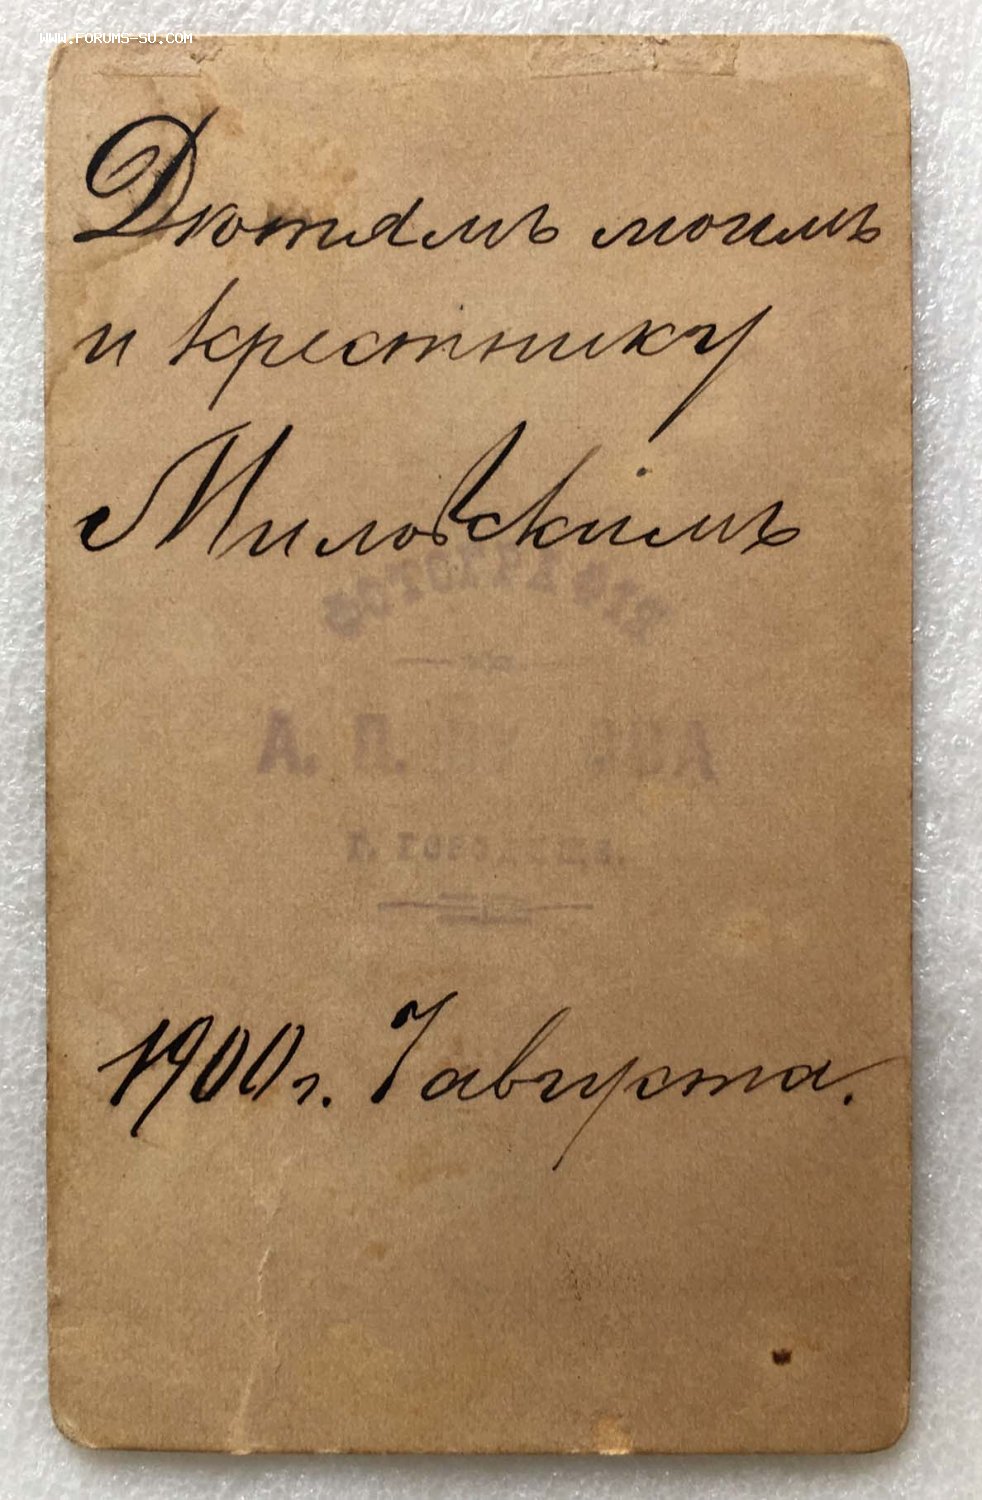 WWW.FORUMS-SU.COM
Дютямъ моимъ
и крестнику
Миловскимъ
ФОТОГРАФІЯ
А. П.
Г. ГОРОДИЩЕ.
1900 г. 7 августа.